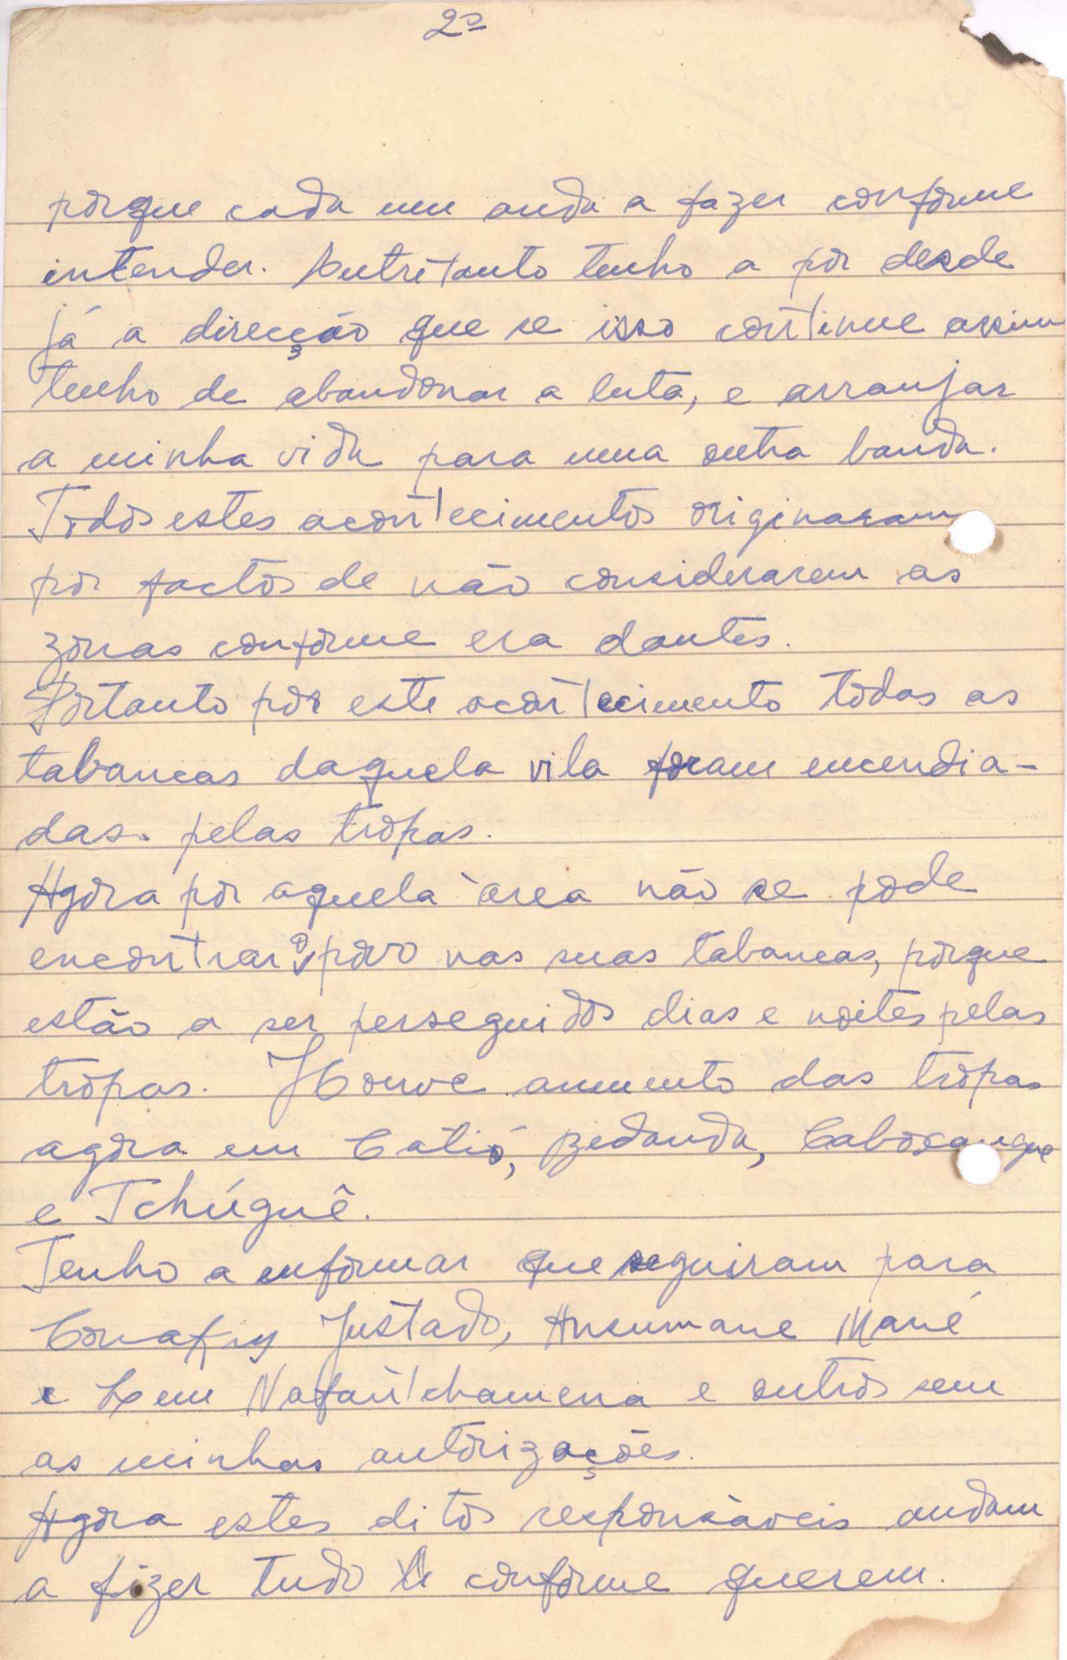 2º
porque cada um anda a fazer conforme
intender. Entretanto tenho a pôr desde
já a direcção que se isso continue assim
tenho de abandonar a luta, e arranjar
a minha vida para uma outra banda.
Todos estes acontecimentos originaram
por factos de não considerarem as
zonas conforme era dantes.
Portanto por este acontecimento todas as
tabancas daquela vila foram encendia-
das pelas tropas.
Agora por aquela àrea não se pode
encontrar o povo nas suas tabancas, porque
estão a ser perseguidos dias e noites pelas
tropas. Houve aumento das tropas
agora em Catió, Bedanda, Caboxangue
e Tchúguê.
Tenho a informar que seguiram para
Conakry Justado, Ansumane Mané
e Nafantchamena e outros sem
as minhas autorizações.
Agora estes ditos responsàveis andam
a fazer tudo conforme querem.